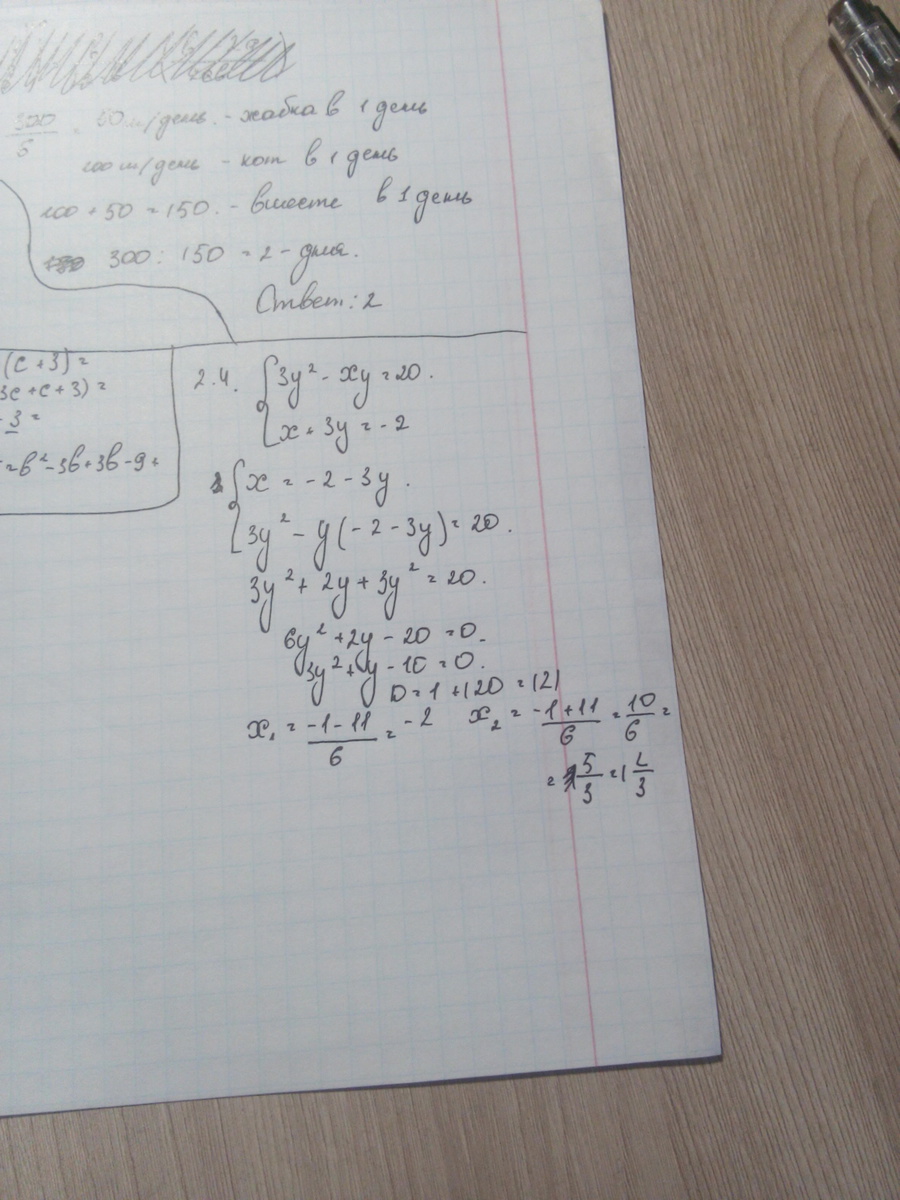 300/6 = 50 м/день. - жабка в 1 день
100 м/день - кот в 1 день
100 + 50 = 150. - вместе в 1 день
300 : 150 = 2 - дня.
Ответ: 2
(c + 3) =
3c + c + 3) =
- 3 =
= b² - 3b + 3b - 9 +
2.4. { 3y² - xy = 20.
x + 3y = -2
{ x = -2 - 3y.
3y² - y(-2 - 3y) = 20.
3y² + 2y + 3y² = 20.
6y² + 2y - 20 = 0.
3y² + y - 10 = 0.
D = 1 + 120 = 121
x₁ = (-1 - 11)/6 = -2 x₂ = (-1 + 11)/6 = 10/6 =
= 5/3 = 1 2/3